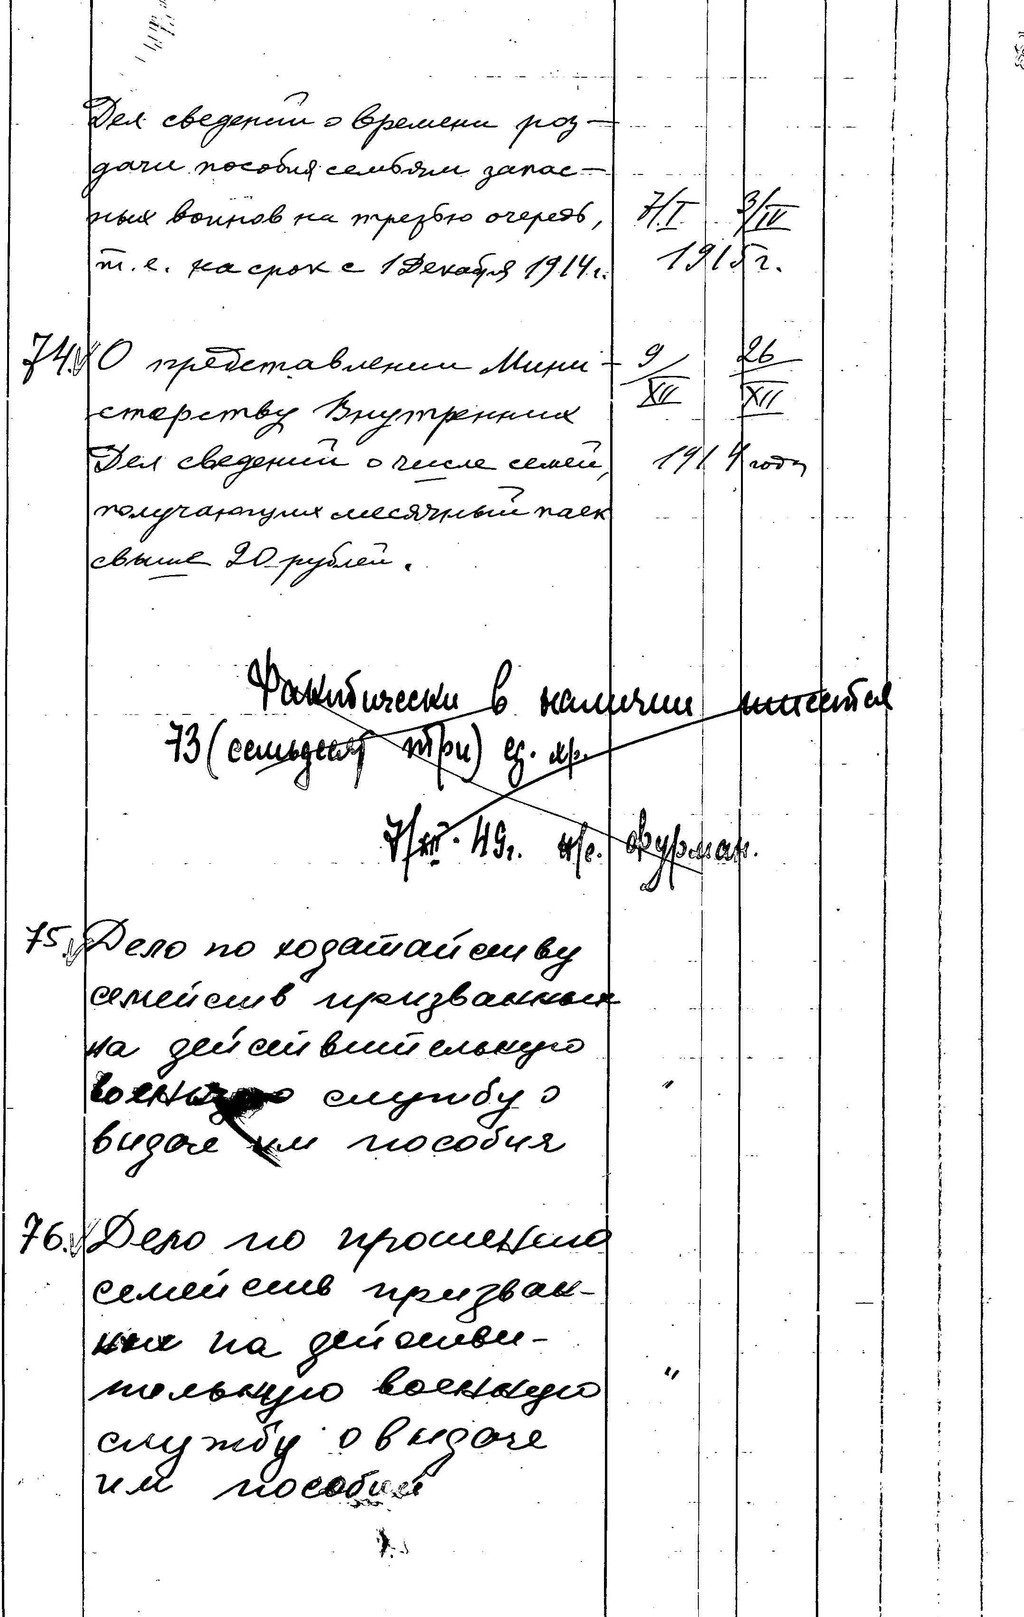 Дел сведений о времени роз-
дачи пособия семьям запас-
ных воинов на третью очередь, 7/I 3/IV
т.е. на срок с 1 Декабря 1914 г. 1915 г.
74. О представлении Мини- 9/XII 26/XII
стерству Внутренних
Дел сведений о числе семей, 1914 году
получающих месячный паек
свыше 20 рублей.
Фактически в наличии имеется
73 (семьдесят три) ед. хр.
7/XII. 49 г. н/с. Фурман.
75. Дело по ходатайству
семейств призванных
на действительную
военную службу о "
видаче им пособия
76. Дело по прошению
семейств призван-
ных на действи-
тельную военную "
службу о видаче
им пособий